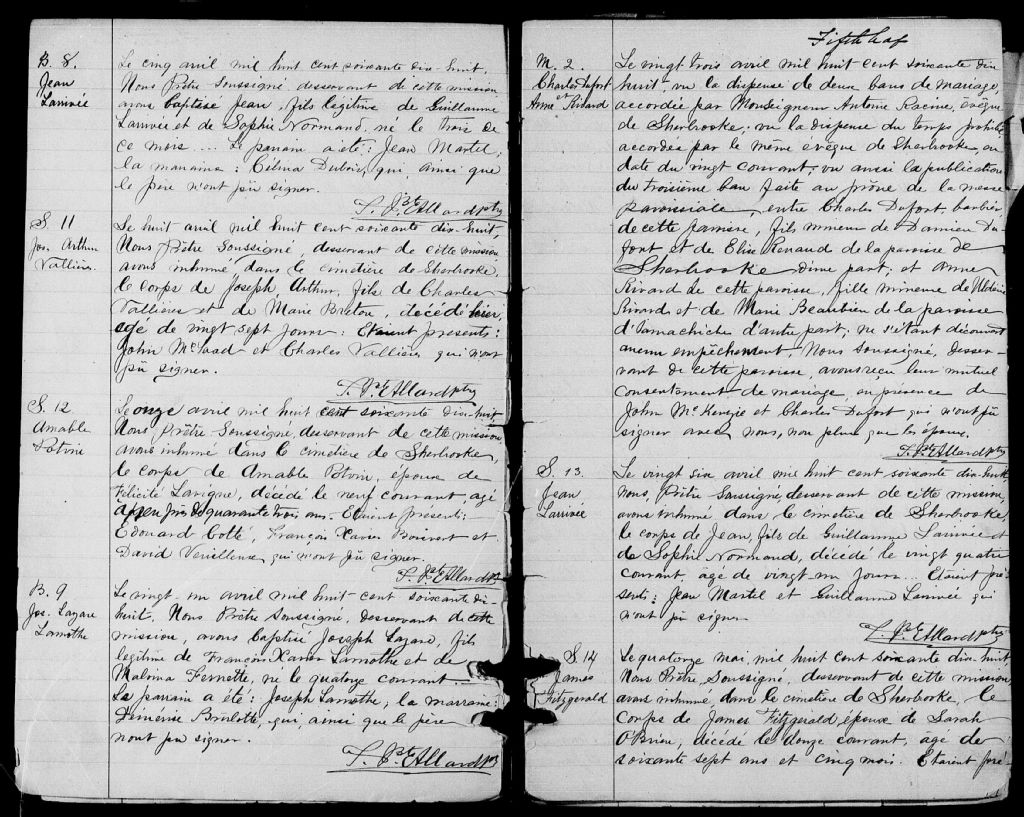 B. 8.
Jean
Larivée
Le cinq avril mil huit cent soixante dix-huit,
Nous Prêtre Soussigné desservant de cette mission
avons baptisé Jean, fils legitime de Guillaume
Larivée et de Sophie Normand, né le trois de
ce mois ... Le parain a été: Jean Martel;
la maraine: Célina Dubois, qui, ainsi que
le père n'ont pu signer.
T. J. Bte Allard ptre
S. 11
Jos. Arthur
Vallières.
Le huit avril mil huit cent soixante dix-huit,
Nous Prêtre Soussigné desservant de cette mission
avons inhumé dans le cimetière de Sherbrooke,
le corps de Joseph Arthur, fils de Charles
Vallières et de Marie Breton, décédé hier,
agé de vingt sept jours: Etaient presents:
John et Charles Vallières qui n'ont
pu signer.
T. J. Bte Allard ptre
S. 12
Amable
Potvin
Le onze avril mil huit cent soixante dix-huit
Nous Prêtre Soussigné, desservant de cette mission
avons inhumé dans le cimetière de Sherbrooke,
le corps de Amable Potvin, époux de
Félicité Lavigne, décédé le neuf courant agé
à peu près de quarante trois ans. Etaient presents:
Edouard Cotté, François Xavier Boisvert et
David Veuilleux qui n'ont pu signer.
T. J. Bte Allard ptre
B. 9
Jos. Lazare
Lamothe
Le vingt-un avril mil huit-cent soixante dix-
huit, Nous Prêtre Soussigné, desservant de cette
mission, avons baptisé Joseph Lazare, fils
legitime de François Xavier Lamothe et de
Malvina Fernette, né le quatorze courant.—
Le parain a été: Joseph Lamothe; la marraine:
Demerise Brulotte qui, ainsi que le père
n'ont pu signer.
T. J. Bte Allard ptre
Fifth leaf
M. 2.
Charles Dufort
et
Anne Rivard
Le vingt trois avril mil huit cent soixante dix
huit, vu la dispense de deux bans de mariage,
accordée par Monseigneur Antoine Racine, évêque
de Sherbrooke; vu la dispense du temps prohibé
accordée par le même évêque de Sherbrooke, en
date du vingt courant, vu aussi la publication
du troisième ban faite au prône de la messe
paroissiale, entre Charles Dufort, barbier
de cette paroisse, fils mineur de Damien Du
fort et de Elise Renaud de la paroisse de
Sherbrooke d'une part; et Anne
Rivard de cette paroisse, fille mineure de
Rivard et de Marie Beaubien de la paroisse
d'Yamachiche d'autre part; ne s'étant découvert
aucun empêchement, Nous Soussigné, desser-
vant de cette paroisse, avons reçu leur mutuel
consentement de mariage, en présence de
John McKenzie et Charles Dufort qui n'ont pu
signer avec nous, non plus que les époux.
T. J. Bte Allard ptre
S. 13.
Jean
Larivée
Le vingt six avril mil huit cent soixante dix-huit
Nous, Prêtre Soussigné, desservant de cette mission,
avons inhumé dans le cimetière de Sherbrooke,
le corps de Jean, fils de Guillaume Larivée et
de Sophie Normand, décédé le vingt quatre
courant, agé de vingt un jours... Etaient pré-
sents: Jean Martel et Guillaume Larivée qui
n'ont pu signer.
T. J. Bte Allard ptre
S. 14
James
Fitzgerald
Le quatorze mai mil huit cent soixante dix-huit
Nous Prêtre, Soussigné, desservant de cette mission
avons inhumé dans le cimetière de Sherbrooke, le
corps de James Fitzgerald époux de Sarah
O'Brien, décédé le douze courant, agé de
soixante sept ans et cinq mois. Etaient pré-